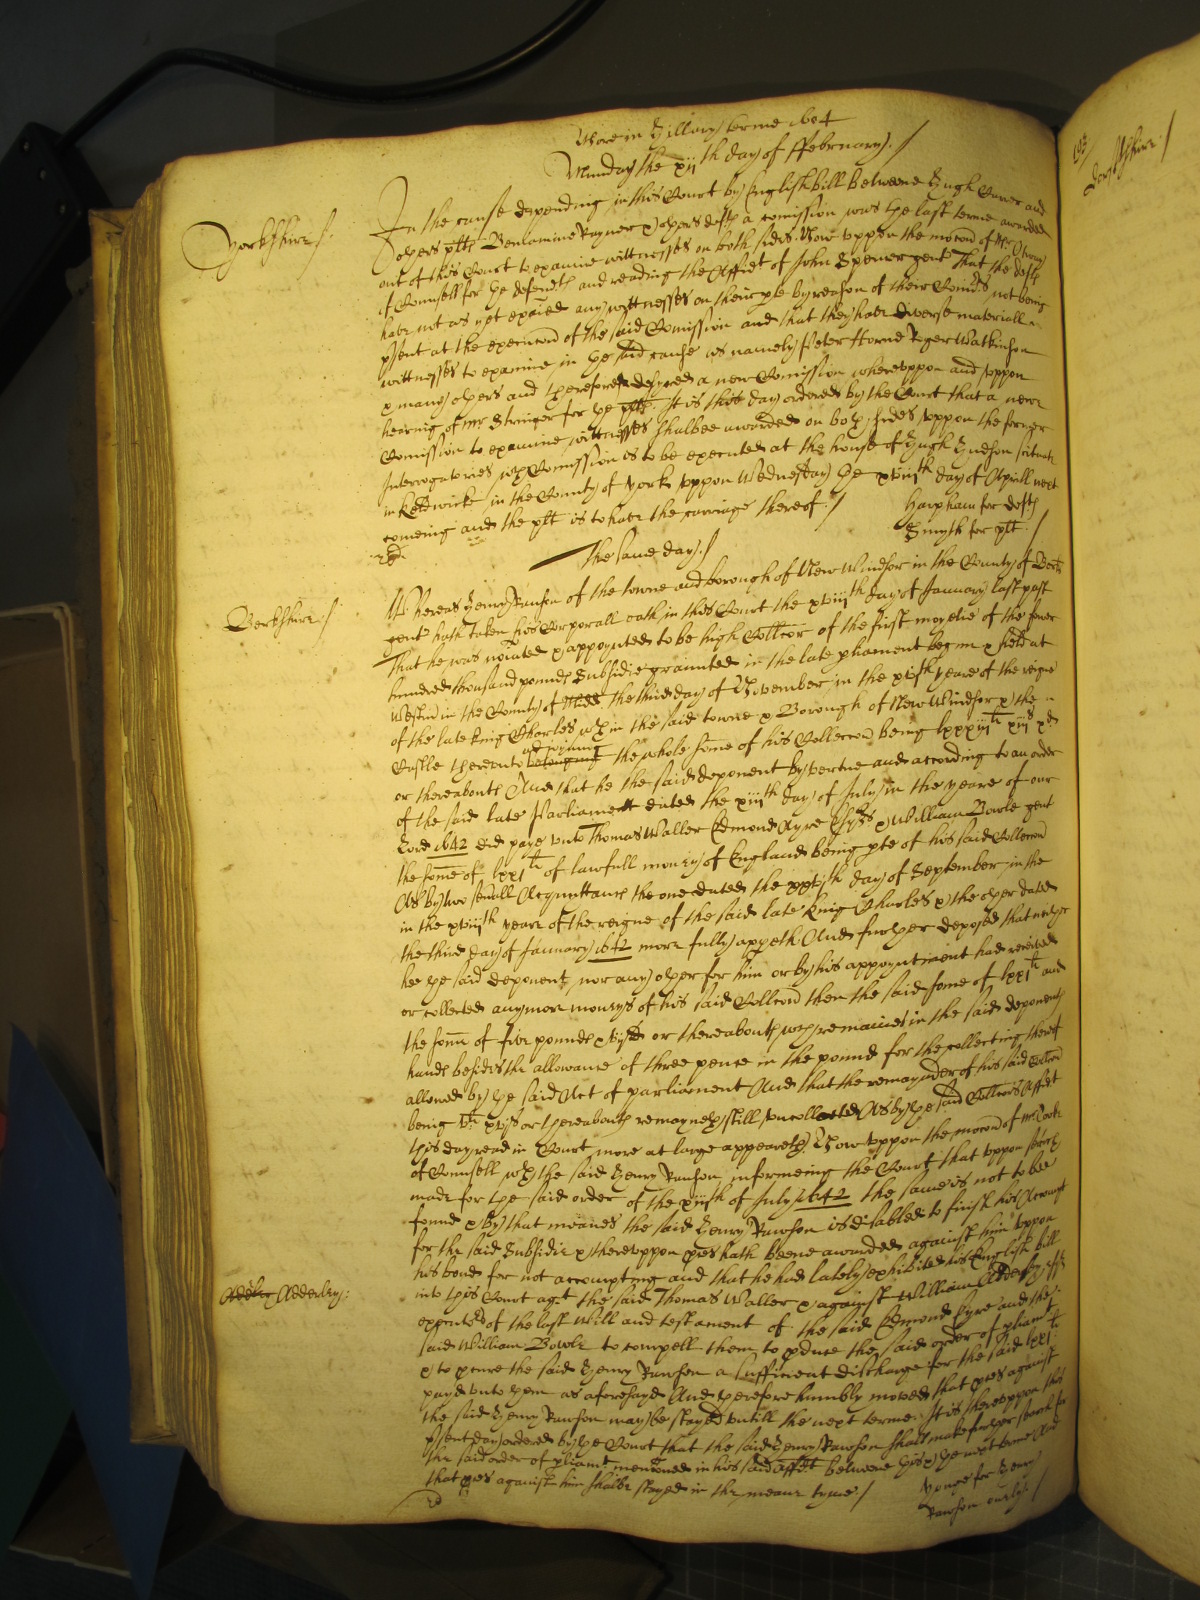 More in Hillary terme 1654
Munday the xiith day of ffebruary /
Yorkshire /:
In the cause depending in this Court by English bill Betweene Hugh and
others plts Beniamine Rayner & others defts a comission was the last terme awarded
out of this Court to examine wittnesses on both sides. Now uppon the mocon of Mr
of Counsell for the defendts and reading the Affidt of John Spencer gent That the defts
have not as yet exaied any wittnesses on their pte by reason of their Comrs not being
psent at the execucon of the said Comission and that they have diverse materiall
wittnesses to examine in the said cause as namely Peter Horne Roger Watkinson
& many others and therefore desyred a new Comission whereuppon and uppon
hearing of Mr Stringer for the plts. It is this day ordered by the Court that a newe
Comission to examine wittnesses shalbee awarded on both sides uppon the former
Interrogatories wch Comission is to be executed at the house of Hugh Hudson scituate
in in the County of Yorke uppon Wednesday the xviiith day of Aprill next
comeing and the plt is to have the carriage thereof. /
Harpham for defts
Smyth for plt. /
The same day. /
Berkshire /:
Whereas Henry Rawson of the towne and borough of New Windsor in the County of Berks
gent hath taken his Corporall oath in this Court the xviiith day of January last past
That he was noiated & appoynted to be high Collcor of the first moyetie of the fower
hundred thousand pounds Subsidie graunted in the late pliament begun & held at
Westmr in the County of Midd the third day of November in the xvith yeare of the reigne
of the late king Charles wthin the said towne & Borough of New Windsor & the
Castle thereunto belonging adioyning the whole some of his Colleccon being lxxxiiil xiiis xd
or thereabouts And that he the said deponent by vertue and according to an order
of the said late Parliament dated the xiiith day of July in the yeare of our
Lord 1642 did paye unto Thomas Waller Edmond Ayre Esqrs & William Bowle gent
the some of lxxil of lawfull money of England being pte of his said Colleccon
As by two severall Acquittances the one dated the day of September in the
in the xviiith yeare of the reigne of the said late king Charles & the other dated
the third day of January 1642 more fully appeth And further deposed that neither
hee the said deponent nor any other for him or by his appoyntment had received
or collected any more moneys of his said Colleccon then the said some of lxxil and
the some of five pounds or thereabouts wch remained in the said deponents
hands besides the allowance of three pence in the pound for the collecting thereof
allowed by the said Act of parliament And that the remaynder of his said Colleccon
being or thereabouts remayneth still uncollected As by the said Collcors Affidt
this day read in Court more at large appeareth. Now uppon the mocon of Mr Cooke
of Counsell wth the said Henry Rawson informeing the Court that uppon serch
made for the said order of the xiiith of July 1642 the same is not to bee
found & By that meanes the said Henry Rawson is disabled to finish his Accompt
for the said Subsidie & thereuppon pces hath beene awarded against him uppon
his bond for not accompting and that he had lately exhibited his English bill
Adderley:
into this Court agt the said Thomas Waller & against William Adderley
executor of the last will and testament of the said Edmond Eyre and the
said William Bowle to compell them to pduce the said order of pliamt
& to pcure the said Henry Rawson a sufficient discharge for the said lxxil
payd unto them as aforesayd And therefore humbly moved that pces against
the said Henry Rawson may be stayed untill the next terme. It is thereuppon this
psent day ordered by the Court that the said Henry Rawson shall make further search for
the said order of pliamt mencioned in his said affidt betweene this & the next terme And
that pces against him shalbe stayed in the meane tyme /
Younge for Henry
Rawson /